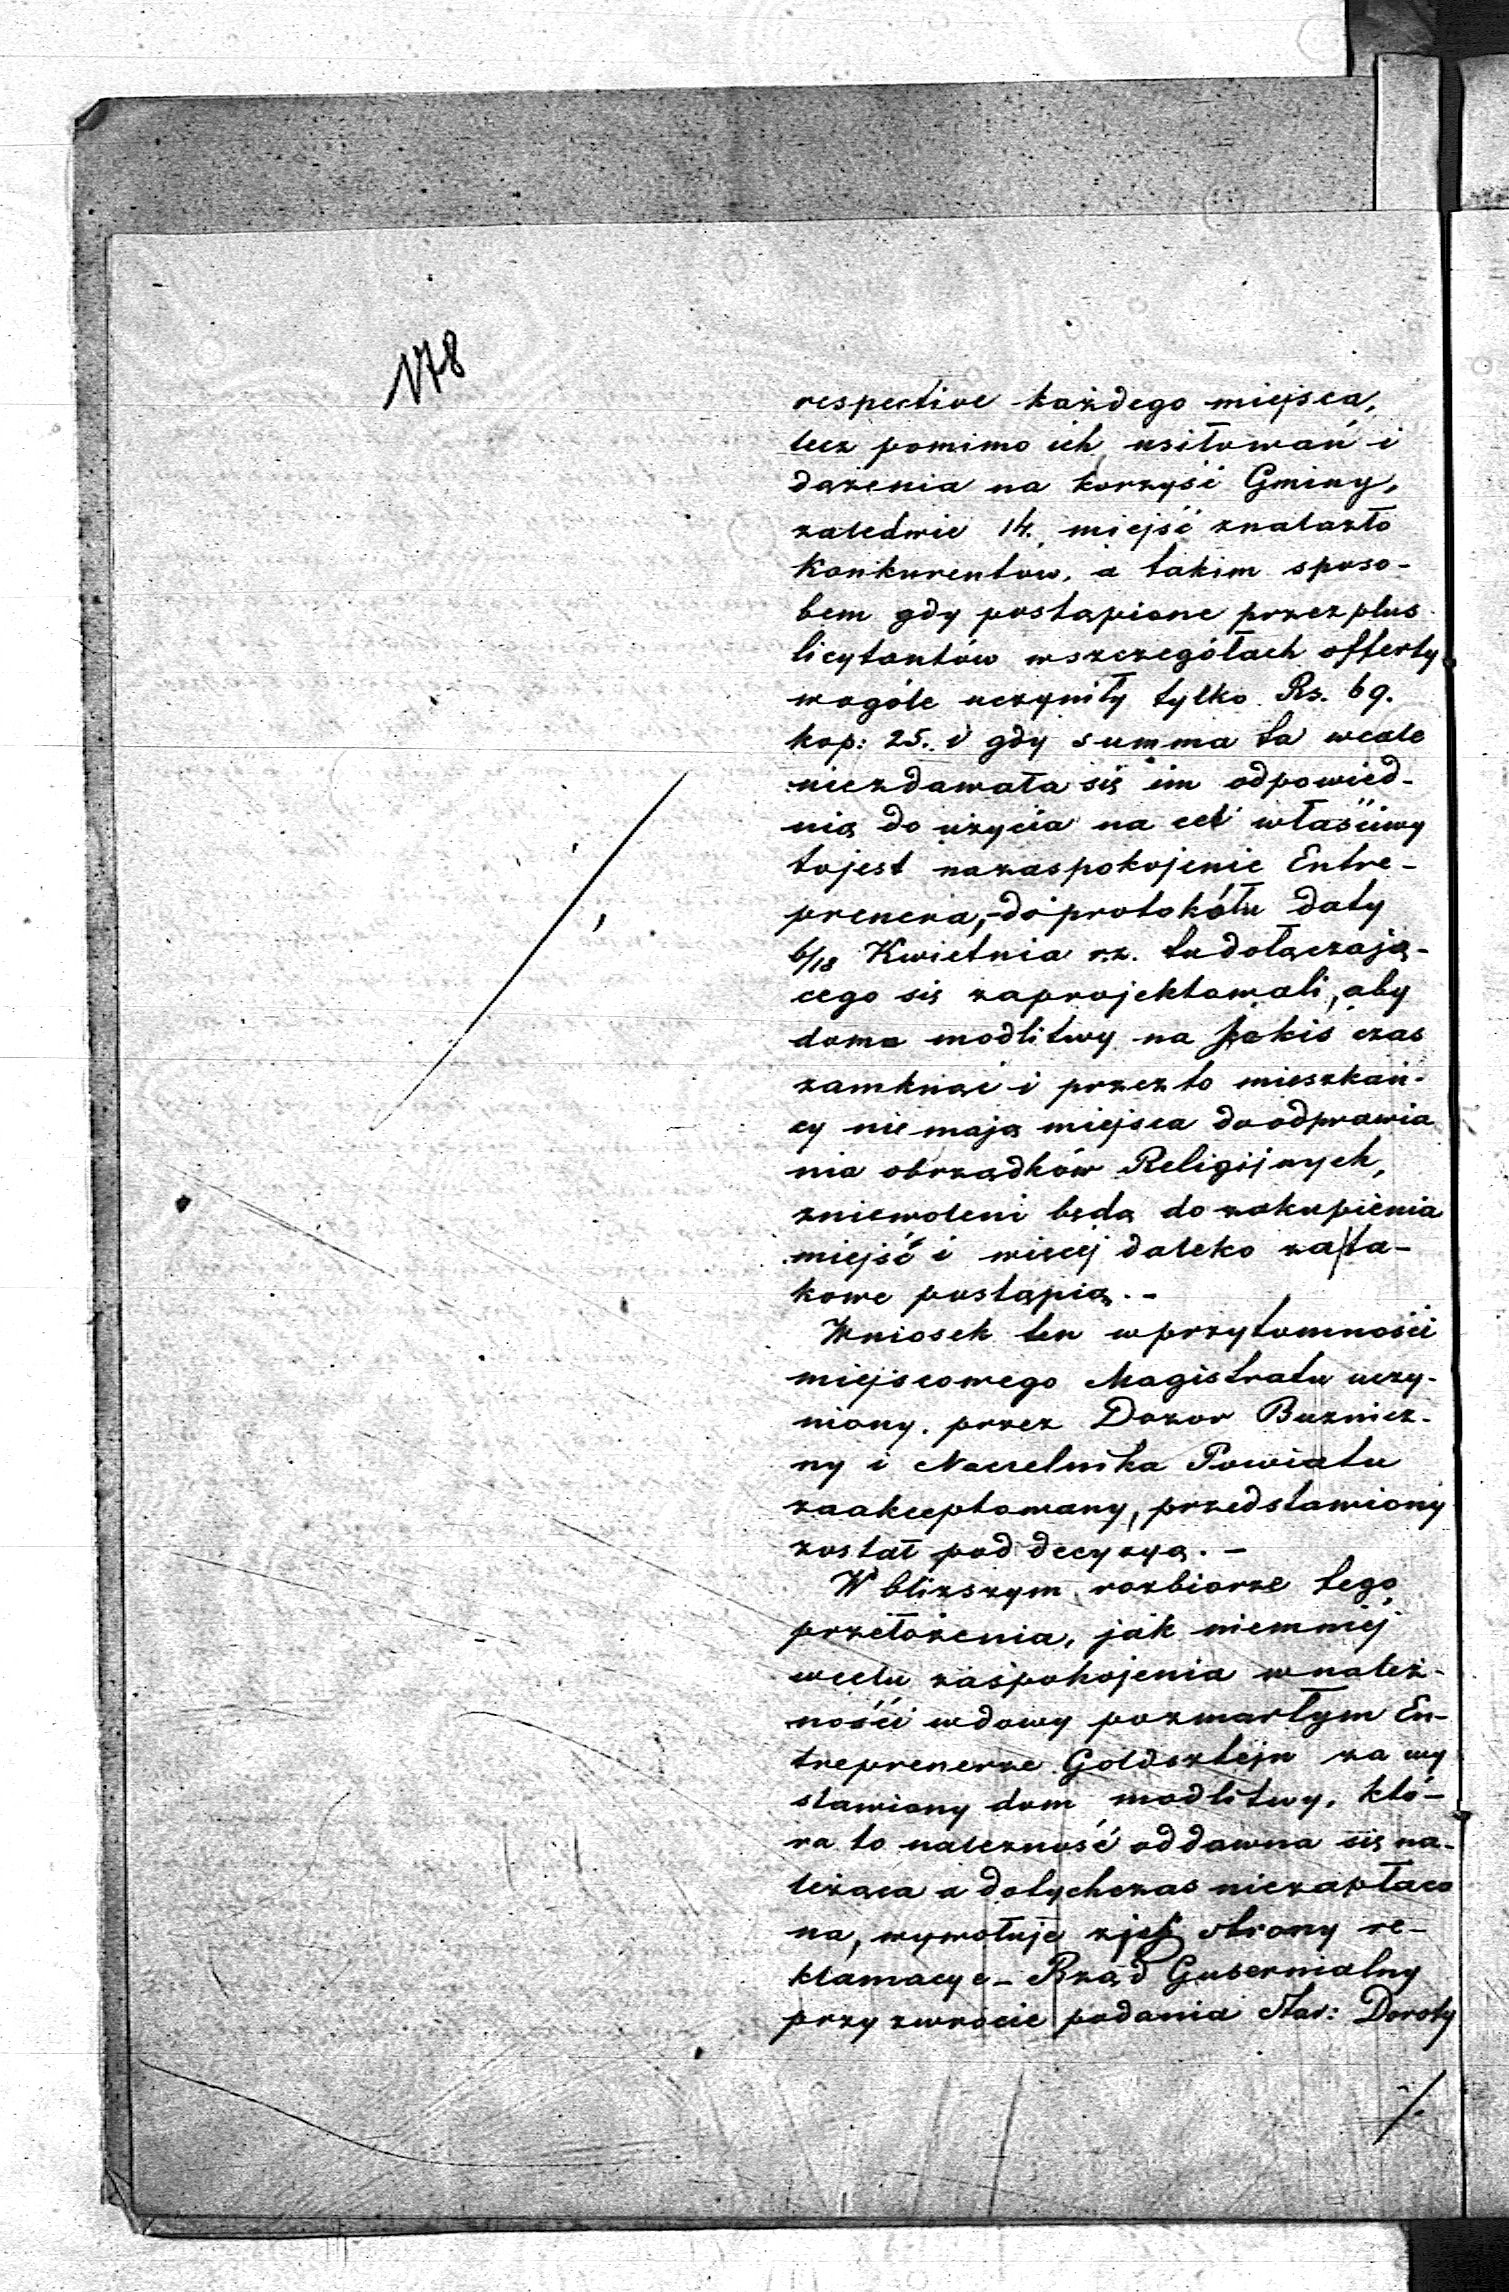 178
respective każdego miejsca,
lecz pomimo ich usiłowań i
dążenia na korzyść Gminy,
zaledwie 14. miejść znalazło
Konkurentow, a takim sposo-
bem gdy postąpione przez plus
licytantów wszczegółach offerty
wogóle uczyniły tylko Rs. 69.
kop: 25. i gdy summa ta wcale
niezdawała się im odpowied-
nią do użycia na cel właściwy
tojest nazaspokojenie Entre-
prenera, - do protokółu daty
6/18 Kwietnia r.z. tu dołączają-
cego się zaprojektowali, aby
domo modlitwy na jakiś czas
zamknąć i przez to mieszkań-
cy nie mając miejsca do odprawia
nia obrządków Religijnych,
zniewoleni będą do zakupienia
miejść i więcej daleko za ta-
kowe postąpią. -
Wniosek ten w przytomności
miejscowego Magistratu uczy-
niony, przez Dozor Bużnicz-
ny i Naczelnika Powiatu
zaakceptowany, przedstawiony
został pod decyzyą. -
W bliższym rozbiorze tego
przełożenia, jak niemniej
wcelu zaspokojenia w należ-
ności wdowy pozmarłym En-
treprenerze Goldsztejn za wy
stawiony dom modlitwy, któ-
ra to należność oddawna się na-
leżąca a dotychczas niezapłaco
na, wywołuje z jej strony re-
klamacye - Rząd Gubernialny
przy zwrocie podania Star: Doroty
./.